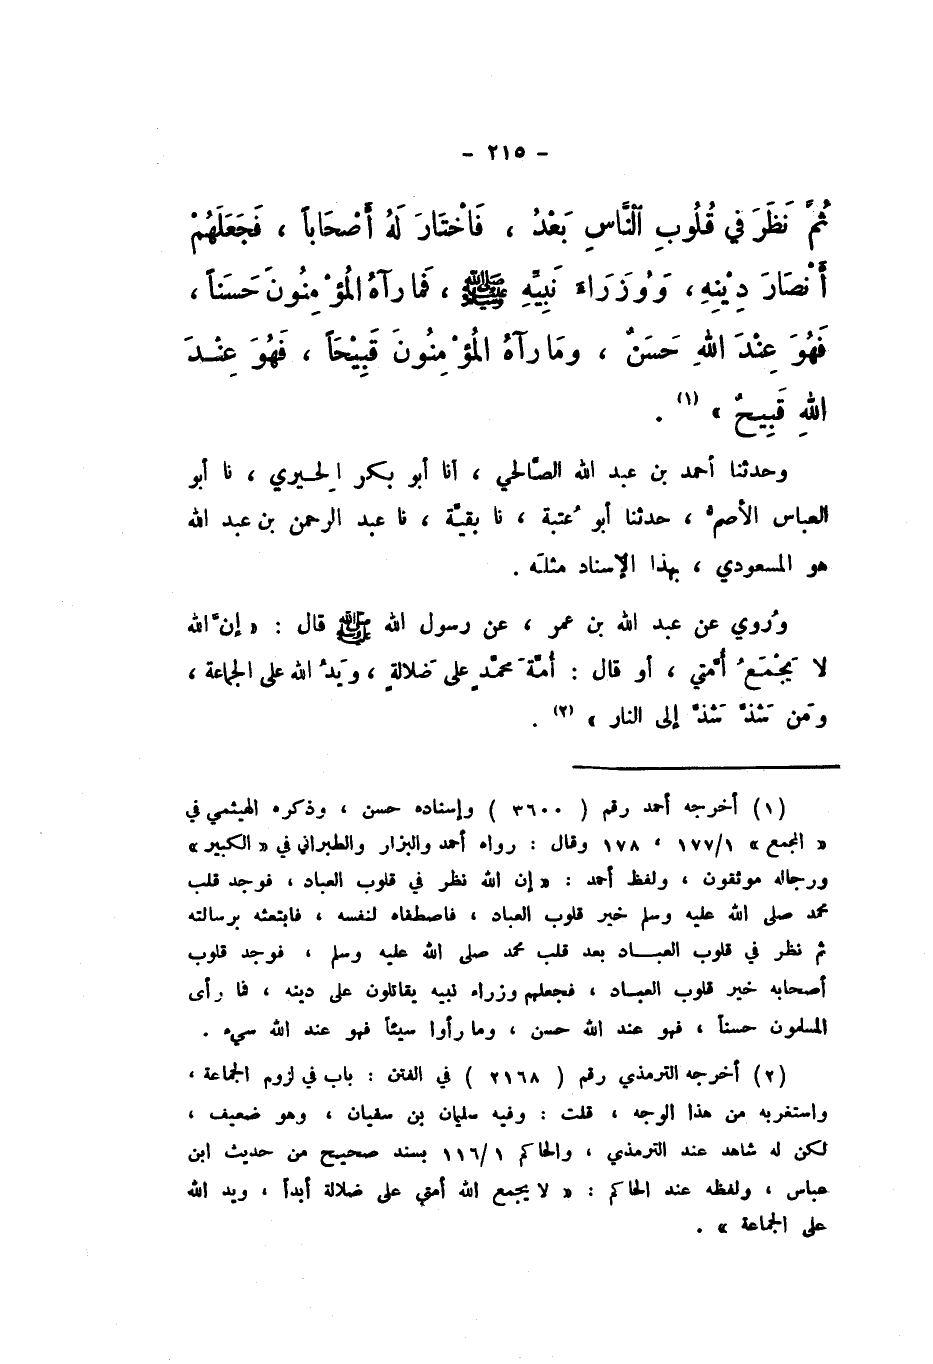 - ٢١٥ -
ثُمَّ نَظَرَ في قُلُوبِ النَّاسِ بَعْدُ ، فَاخْتَارَ لَهُ أَصْحَاباً ، فَجَعَلَهُمْ
أَنْصَارَ دِيْنِهِ، وَوُزَرَاءَ نَبِيِّهِ ﷺ ، فَما رآهُ المُؤْمِنُونَ حَسَنَاً ،
فَهُوَ عِنْدَ اللهِ حَسَنٌ ، ومَا رآهُ المُؤْمِنُونَ قَبِيْحَاً ، فَهُوَ عِنْـدَ
اللهِ قَبِيحٌ » (١) .
وحدثنا أحمد بن عبد الله الصّالحي ، أنا أبو بكر الحيـري ، نا أبو
العباس الأصمّ ، حدثنا أبو عُتبة ، نا بقيّة ، نا عبد الرحمن بن عبد الله
هو المسعودي ، بهذا الإسناد مثلَه .
ورُوي عن عبد الله بن عمر ، عن رسول الله ﷺ قال : « إنّ الله
لا يَجْمَعُ أُمّتي ، أو قال : أُمّةَ محمّدٍ على ضَلالةٍ ، ويَدُ الله على الجماعة ،
ومَن شَذّ شَذّ إلى النار » (٢) .
(١) أخرجه أحمد رقم ( ٣٦٠٠ ) وإسناده حسن ، وذكره الهيثمي في
« المجمع » ١٧٧/١ ، ١٧٨ وقال : رواه أحمد والبزار والطبراني في « الكبير »
ورجاله موثقون ، ولفظ أحمد : « إن الله نظر في قلوب العباد ، فوجد قلب
محمد صلى الله عليه وسلم خير قلوب العباد ، فاصطفاه لنفسه ، فابتعثه برسالته
ثم نظر في قلوب العبـاد بعد قلب محمد صلى الله عليه وسلم ، فوجد قلوب
أصحابه خير قلوب العباد ، فجعلهم وزراء نبيه يقاتلون على دينه ، فما رأى
المسلمون حسناً ، فهو عند الله حسن ، وما رأوا سيئاً فهو عند الله سيء .
(٢) أخرجه الترمذي رقم ( ٢١٦٨ ) في الفتن : باب في لزوم الجماعة ،
واستغربه من هذا الوجه ، قلت : وفيه سليمان بن سفيان ، وهو ضعيف ،
لكن له شاهد عند الترمذي ، والحاكم ١١٦/١ بسند صحيح من حديث ابن
عباس ، ولفظه عند الحاكم : « لا يجمع الله أمتي على ضلالة أبداً ، ويد الله
على الجماعة » .